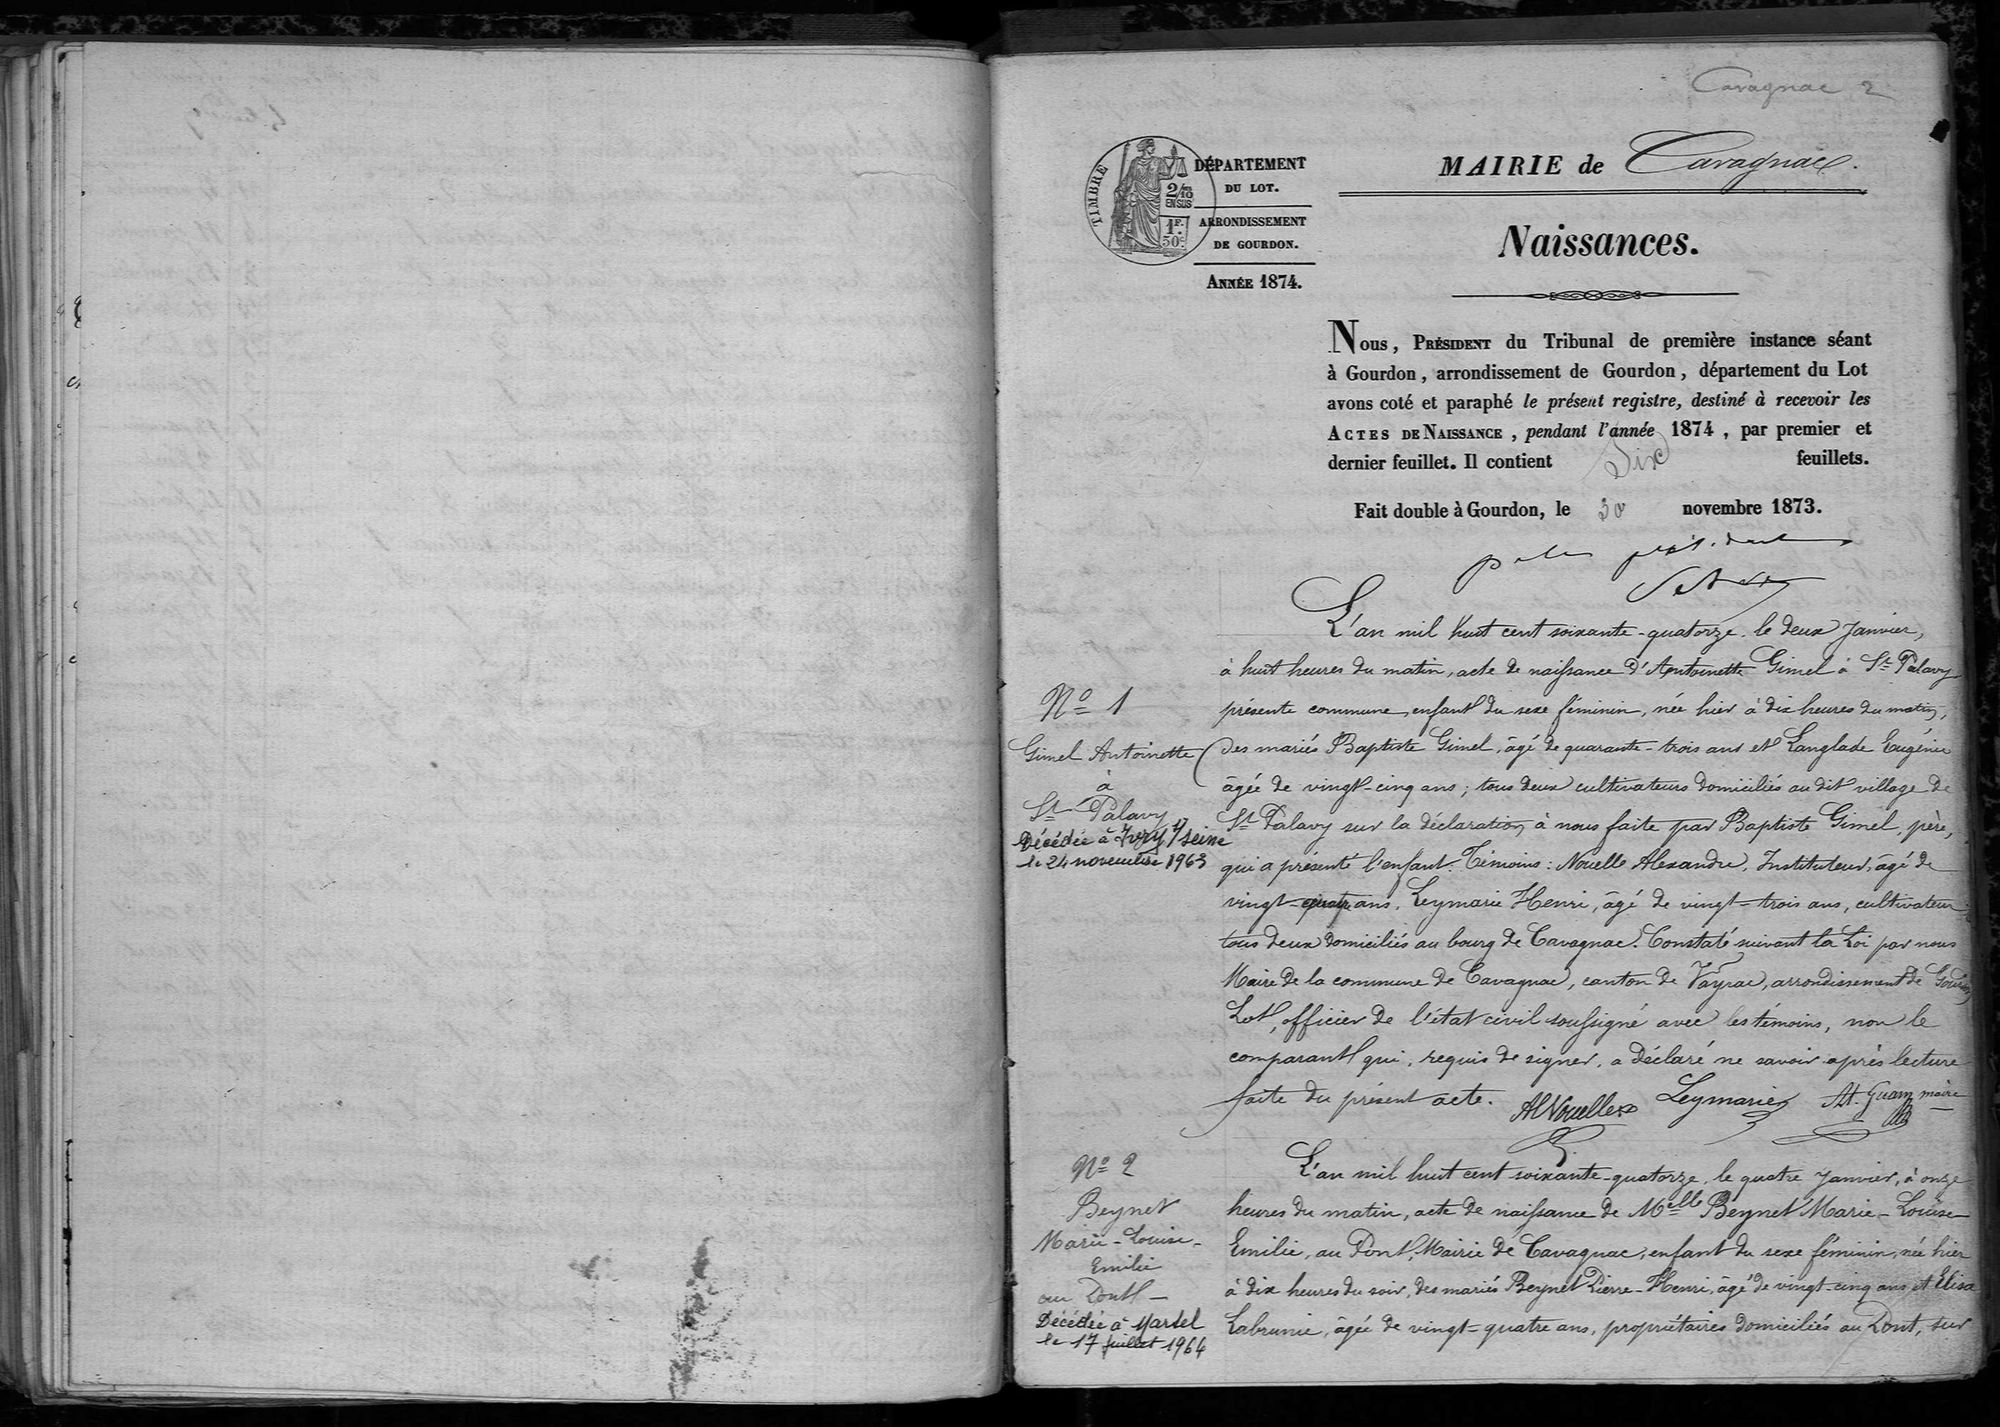 Cavagnac 2
TIMBRE
2/10
EN SUS
1F.
50c.
DÉPARTEMENT
DU LOT.
ARRONDISSEMENT
DE GOURDON.
ANNÉE 1874.
MAIRIE de Cavagnac.
Naissances.
Nous, PRÉSIDENT du Tribunal de première instance séant
à Gourdon, arrondissement de Gourdon, département du Lot
avons coté et paraphé le présent registre, destiné à recevoir les
ACTES DE NAISSANCE, pendant l'année 1874, par premier et
dernier feuillet. Il contient Six feuillets.
Fait double à Gourdon, le 30 novembre 1873.
président
L'an mil huit cent soixante-quatorze, le deux Janvier,
à huit heures du matin, acte de naissance d'Antoinette Gimel à St Palavy
présente commune, enfant du sexe féminin, née hier à dix heures du matin,
des mariés Baptiste Gimel, âgé de quarante-trois ans et Langlade Eugénie
âgée de vingt-cinq ans; tous deux cultivateurs domiciliés au dit village de
St Palavy sur la déclaration à nous faite par Baptiste Gimel, père,
qui a présenté l'enfant. Témoins: Nouelle Alexandre, Instituteur, âgé de
vingt-quatre ans, Leymarie Henri, âgé de vingt-trois ans, cultivateur
tous deux domiciliés au bourg de Cavagnac. Constaté suivant la Loi par nous
Maire de la commune de Cavagnac, canton de Vayrac, arrondissement de Gourdon,
Lot, officier de l'état civil soussigné avec les témoins, non le
comparant qui, requis de signer, a déclaré ne savoir après lecture
faite du présent acte. Al Nouelle Leymarie maire
No 1
Gimel Antoinette
à
St Palavy
Décédée à Ivry s/ seine
le 24 novembre 1963
No 2
Beynet
Marie-Louise-
Emilie
au Pont
Décédée à Martel
le 17 juillet 1964
L'an mil huit cent soixante-quatorze, le quatre Janvier, à onze
heures du matin, acte de naissance de Melle Beynet Marie-Louise
Emilie, au Pont, Mairie de Cavagnac, enfant du sexe féminin, née hier
à dix heures du soir, des mariés Beynet Pierre-Henri, âgé de vingt-cinq ans et Elisa
Labrunie, âgée de vingt-quatre ans, propriétaires domiciliés au Pont, sur